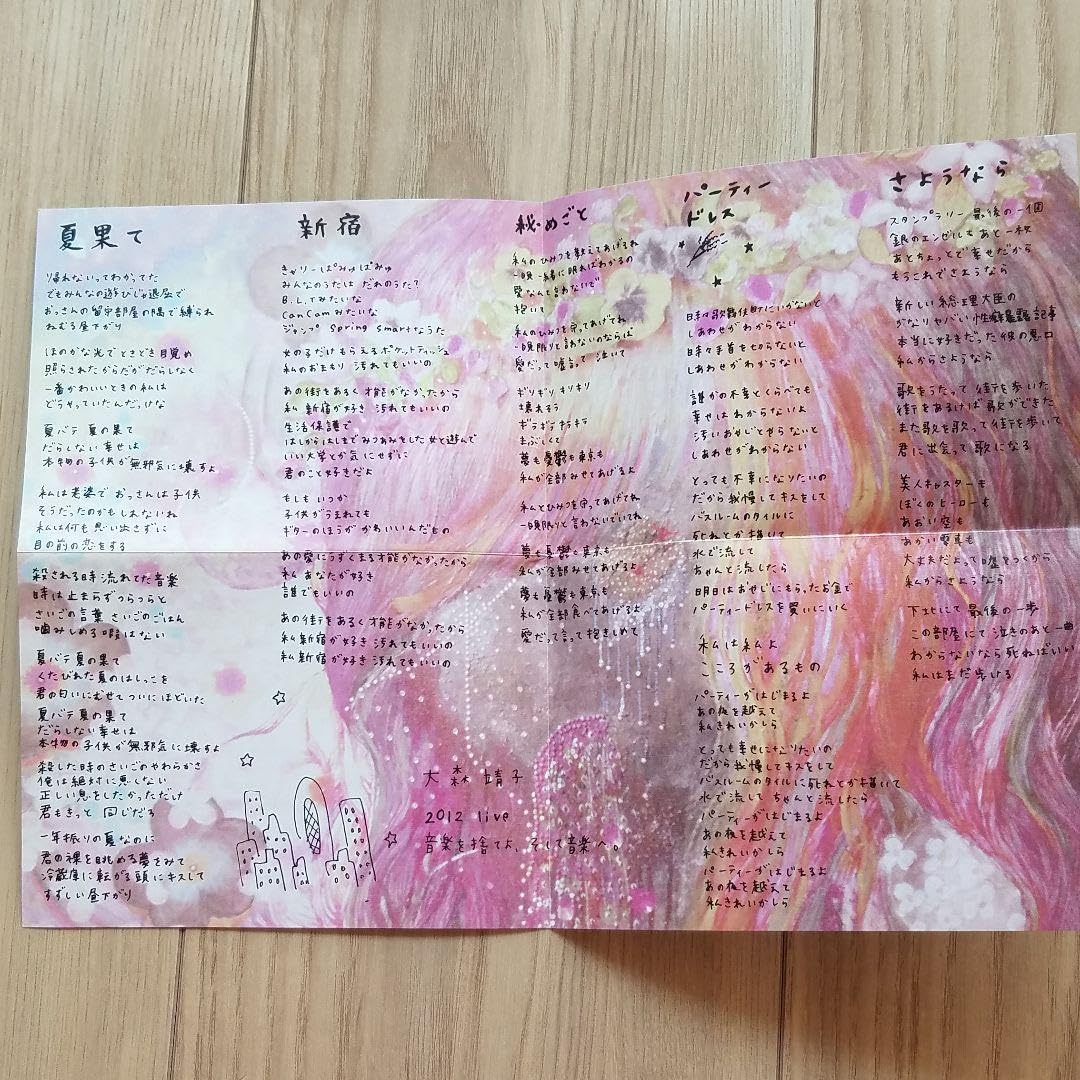 夏果て
帰れないってわかってた
でもみんなの遊びじゃ退屈で
おっさんの留守部屋の隅で縛られ
ねむる昼下がり
ほのかな光でときどき目覚め
照らされたからだがだらしなく
一番かわいいときの私は
どうやっていたんだっけな
夏バテ 夏の果て
だらしない幸せは
本物の子供が無邪気に壊すよ
私は老婆で おっさんは子供
そうだったのかもしれないね
私は何も思い出さずに
目の前の恋をする
殺される時 流れてた音楽
時は止まらずつらつらと
さいごの言葉 さいごのごはん
噛みしめる暇はない
夏バテ夏の果て
くたびれた夏のはしっこを
君の匂いにむせてついにほどいた
夏バテ夏の果て
だらしない幸せは
本物の子供が無邪気に壊すよ
殺した時のさいごのやわらかさ
俺は絶対に悪くない
正しい息をしたかっただけ
君もきっと 同じだろ
一年振りの夏なのに
君の裸を眺める夢をみて
冷蔵庫に転がる頭にキスして
すずしい昼下がり
新宿
きゃりーぱみゅぱみゅ
みんなのうたは だれのうた?
B.L.Tみたいな
CanCamみたいな
ジャンプ Spring smartなうた
女の子だけもらえるポケットティッシュ
私のおまもり 汚れてもいいの
あの街をあるく才能がなかったから
私 新宿が好き 汚れてもいいの
生活保護で
はしからはしまでみつあみをした女と遊んで
いい大学とか気にせずに
君のこと好きだよ
もしも いつか
子供がうまれても
ギターのほうが かわいいんだもの
あの愛にうずくまる才能がなかったから
私 あなたが好き
誰でもいいの
あの街をあるく才能がなかったから
私 新宿が好き 汚れてもいいの
私 新宿が好き 汚れてもいいの
秘めごと
私のひみつを教えてあげるね
一晩 一緒に明ればわかるの
愛なんて言わないで
抱いて
私のひみつを守ってあげてね
一晩限りと言わないのならば
愛だって嘘言って 泣いて
ギリギリ キリキリ
壊れそう
ギラギラ キラキラ
まぶしくて
夢も憂鬱も東京も
私が全部みせてあげるよ
私とひみつを守ってあげてね
一晩限りと言わないでいてね
夢も憂鬱も東京も
私が全部みせてあげるよ
夢も憂鬱も東京も
私が全部食べてあげるよ
愛だって言って抱きしめて
パーティー
ドレス
日々歌舞伎町にいかないと
しあわせがわからない
時々手首を切らないと
しあわせがわからない
誰かの不幸とくらべても
幸せはわからないよ
汚いおやじとやらないと
しあわせがわからない
とっても不幸になりたいの
だから我慢してキスをして
バスルームのタイルに
死ねとか描いて
水で流して
ちゃんと流したら
明日はおやじにもらったお金で
パーティードレスを買いにいく
私は私よ
こころがあるもの
パーティーがはじまるよ
あの夜を越えて
私きれいかしら
とっても幸せになりたいの
だから我慢してキスをして
バスルームのタイルに死ねとか描いて
水で流して ちゃんと流したら
パーティーがはじまるよ
あの夜を越えて
私きれいかしら
パーティーがはじまるよ
あの夜を越えて
私きれいかしら
さようなら
スタンプラリー 最後の一個
銀のエンゼルもあと一枚
あとちょっとで幸せだから
もうこれでさようなら
新しい総理大臣の
かなりヤバい性癖暴露記事
本当に好きだった彼の悪口
私からさようなら
歌をうたって 街を歩いた
街をあるけば歌ができた
また歌を歌って街を歩いて
君に出会って歌になる
美人キャスターも
ぼくのヒーローも
あおい空も
あかい写真も
大丈夫だよって嘘をつくから
私からさようなら
下北にて最後の一歩
この部屋にて泣きのあと一曲
わからないなら死ねばいい
私はまだ歩ける
大森靖子
2012 live
音楽を捨てよ、そして音楽へ。